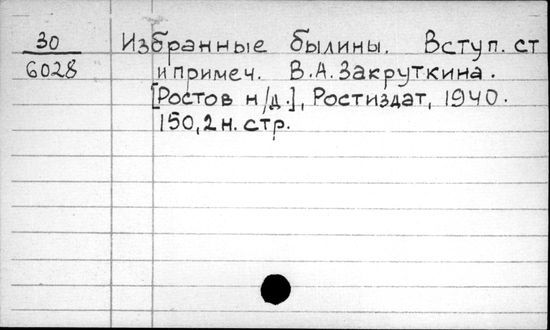 30 Избранные былины. Вступ. ст
6028 и примеч. В.А. Закруткина.
[Ростов н/д.], Ростиздат, 1940.
150, 2 н. стр.